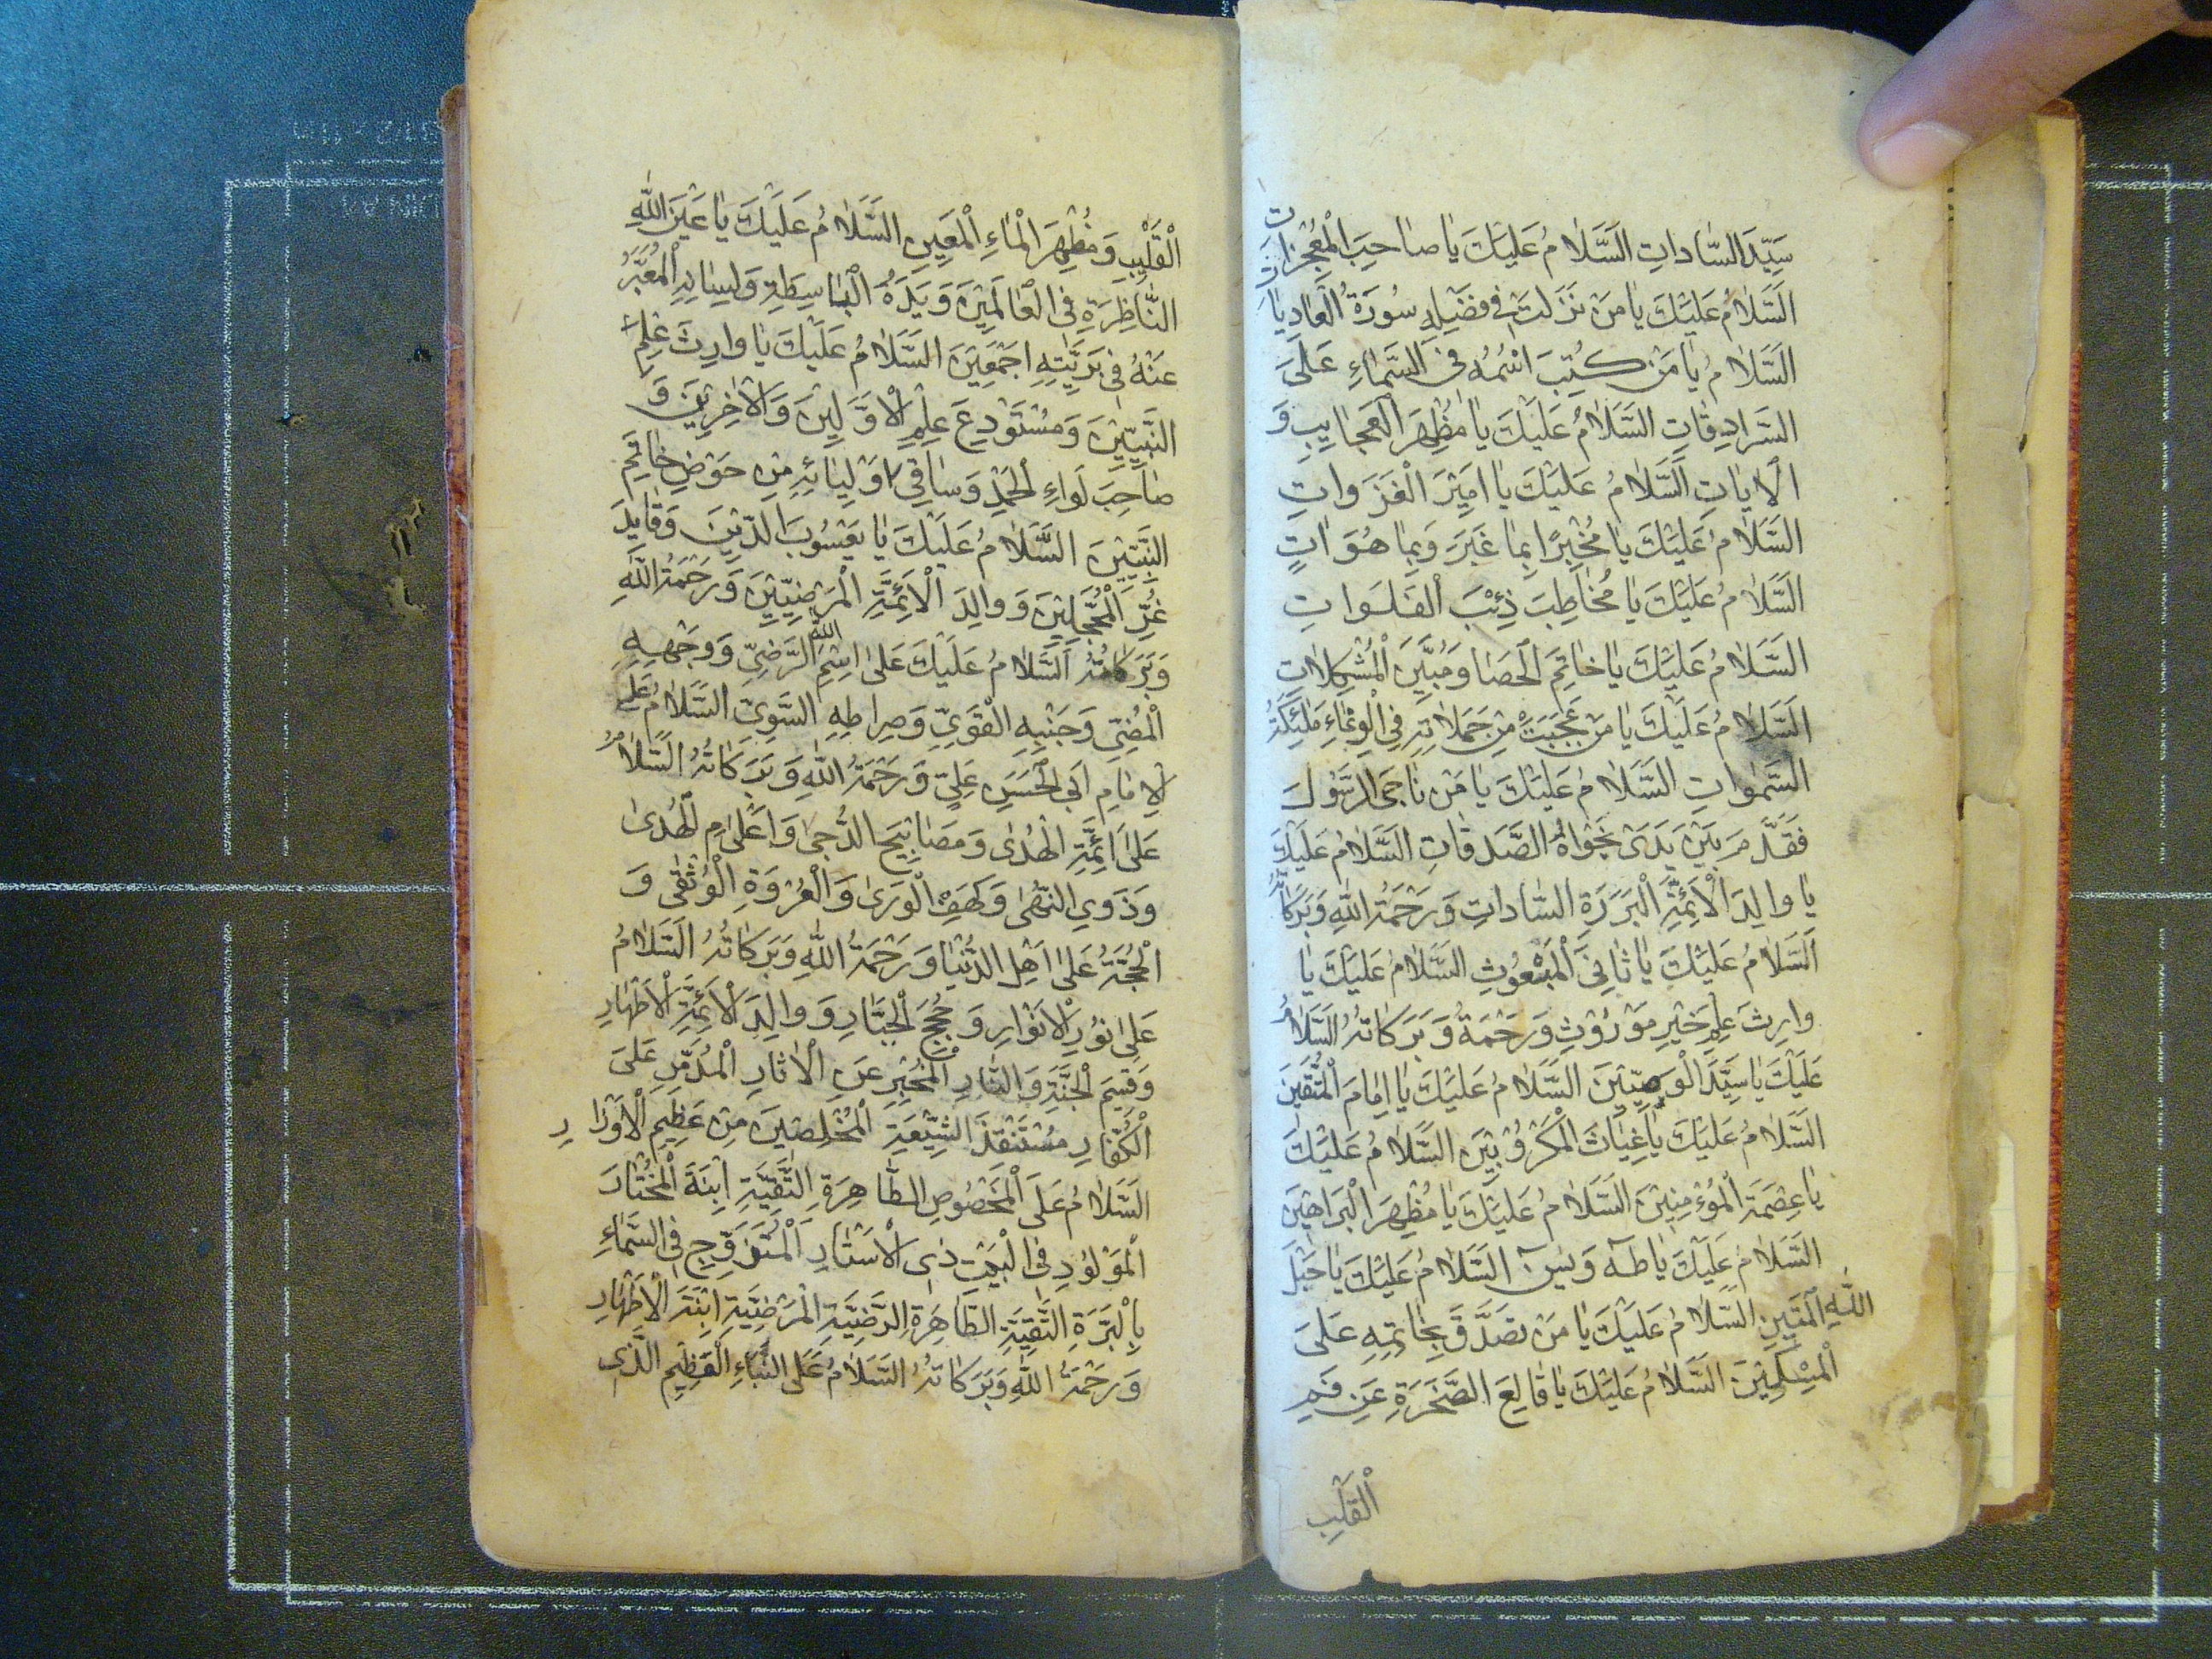 سَيِّدَ السّاداتِ اَلسَّلامُ عَلَيْكَ يا صاحِبَ الْمُعْجِزاتِ
اَلسَّلامُ عَلَيْكَ يا مَنْ نَزَلَتْ فى فَضْلِهِ سُورَةُ الْعادِياتِ
اَلسَّلامُ يا مَنْ كُتِبَ اسْمُهُ فى السَّماءِ عَلَى
السَّرادِقاتِ السَّلامُ عَلَيْكَ يا مُظْهِرَ الْعَجايِبِ وَ
الْاياتِ السَّلامُ عَلَيْكَ يا اَمِيْرَ الْغَزَواتِ
السَّلامُ عَلَيْكَ يا مُخْبِرًا بِما غَبَرَ وَبِما هُوَ اتٍ
السَّلامُ عَلَيْكَ يا مُخاطِبَ ذِئْبَ الْفَلَواتِ
السَّلامُ عَلَيْكَ يا خاتِمَ الْحَصا وَمُبَيِّنَ الْمُشْكِلاتِ
اَلسَّلامُ عَلَيْكَ يا مَنْ عَجِبَتْ مِنْ حَمَلاتِهِ فِى الْوِغاءِ مَلئِكَةُ
السَّمواتِ السَّلامُ عَلَيْكَ يا مَنْ ناجَى الرَّسُولَ
فَقَدَّمَ بَيْنَ يَدَىْ نَجْواهُ الصَّدَقاتِ السَّلامُ عَلَيْكَ
يا والِدَ الْاَئِمَّةِ الْبَرَرَةِ السّاداتِ وَرَحْمَةُ اللهِ وَبَرَكاتُهُ
اَلسَّلامُ عَلَيْكَ يا ثانِىَ الْمَبْعُوثِ السَّلامُ عَلَيْكَ يا
وارِثَ عِلْمِ خَيْرِ مَوْرُوْثٍ وَرَحْمَةُ وَبَرَكاتُهُ السَّلامُ
عَلَيْكَ يا سَيِّدَ الْوَصِيّيْنَ السَّلامُ عَلَيْكَ يا اِمامَ الْمُتَّقِينَ
السَّلامُ عَلَيْكَ يا غِياثَ الْمَكْرُوْبِيْنَ السَّلامُ عَلَيْكَ
يا عِصْمَةَ الْمُؤْمِنِيْنَ السَّلامُ عَلَيْكَ يا مُظْهِرَ الْبَراهِيْنَ
السَّلامُ عَلَيْكَ يا طه وَيس السَّلامُ عَلَيْكَ يا حَبْلَ
اللهِ الْمَتِينِ السَّلامُ عَلَيْكَ يا مَنْ تَصَدَّقَ بِخاتِمِهِ عَلَى
الْمِسْكِيْنَ السَّلامُ عَلَيْكَ يا قالِعَ الصَّخْرَةِ عَنْ فَمِ
الْقَلِيْبِ
الْقَلِيْبِ وَمُظْهِرَ الْماءِ الْمَعِينِ السَّلامُ عَلَيْكَ يا عَيْنَ اللهِ
النّاظِرَةِ فِى الْعالَمِيْنَ وَيَدَهُ الْباسِطَةِ وَلِسانِهِ الْمُعَبِّرُ
عَنْهُ فِى بَرِيَّتِهِ اَجْمَعِيْنَ السَّلامُ عَلَيْكَ يا وارِثَ عِلْمِ
النَّبِيّيْنَ وَمُسْتَوْدِعَ عِلْمِ الْاَوَّلِيْنَ وَالْاخِرِيْنَ وَ
صاحِبَ لَواءِ الْحَمْدِ وَساقِى اَوْلِيائِهِ مِنْ حَوْضِ خاتَمِ
النَّبِيّيْنَ السَّلامُ عَلَيْكَ يا يَعْسُوبَ الدِّيْنَ وَقايِدَ
غُرِّ الْمُحَجَّلِيْنَ وَوالِدَ الْاَئِمَّةِ الْمَرْضِيّيْنَ وَرَحْمَةُ اللهِ
وَبَرَكاتُهُ اَلسَّلامُ عَلَيْكَ عَلى اسْمِ اللهِ الرَّضِىِّ وَوَجْهِهِ
الْمُضِىّ وَجَنْبِهِ الْقَوِىِّ وَصِراطِهِ السَّوِىِّ السَّلامُ عَلَى
الْاِمامِ اَبِى الْحَسَنِ عَلِىّ وَرَحْمَةُ اللهِ وَبَرَكاتُهُ السَّلامُ
عَلى اَئِمَّةِ الْهُدى وَمَصابِيْحِ الدُّجى وَاَعْلامِ الْهُدى
وَذَوِي النُّهى وَكَهْفِ الْوَرى وَالْعُرْوَةِ الْوُثْقى وَ
الْحُجَّةُ عَلى اَهْلِ الدُّنْيا وَرَحْمَةُ اللهِ وَبَرَكاتُهُ السَّلامُ
عَلى نُوْرِ الْاَنْوارِ وَحُجَجِ الْجَبّارِ وَوالِدِ الْاَئِمَّةِ الْاَطْهارِ
وَقَسِيْمَ الْجَنَّةِ وَالنّارِ الْمُخْبِرِ عَنِ الْاثارِ الْمُدَمِّرِ عَلَى
الْكُفّارِ مُسْتَنْقِذَ الشِّيْعَةِ الْمُخْلِصِيْنَ مِنْ عَظِيْمِ الْاَوْزارِ
السَّلامُ عَلَى الْمَخْصُوصِ الطّاهِرَةِ التَّقِيَّةِ ابْنَةَ الْمُخْتارَ
الْمَوْلُوْدِ فِى الْبَيْتِ ذِى الْاَسْتارِ الْمُتَزَوِّجِ فِى السَّماءِ
بِالْبَرَّةِ التَّقِيَّةِ الطّاهِرَةِ الرَّضِيَّةِ الْمَرْضِيَّةِ ابْنَةَ الْاَطْهارِ
وَرَحْمَةُ اللهِ وَبَرَكاتُهُ السَّلامُ عَلَى النَّبَاءِ الْعَظِيْمِ الَّذِى